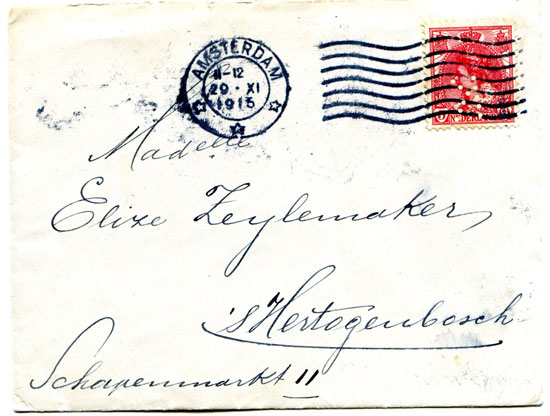 AMSTERDAM
11-12
29 · XI
1915
5 NEDERLAND
Madelle
Elize Zeylemaker
's Hertogenbosch
Schapenmarkt 11